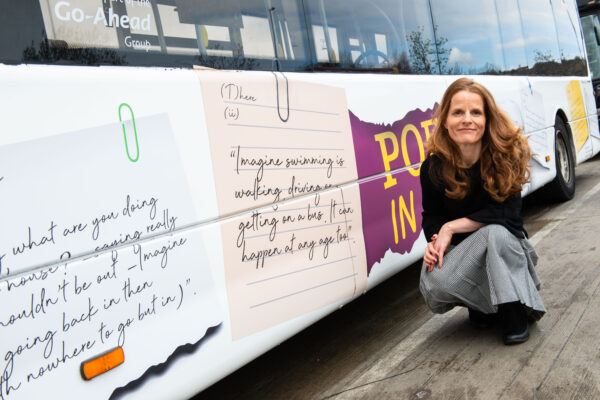 of the
Go-Ahead
Group
what are you doing
house?
really
be out – (Imagine
going back in then
nowhere to go but in)".
(T)here
(ii)
"Imagine swimming is
walking, driving or
getting on a bus. (It can
happen at any age too)".
IN